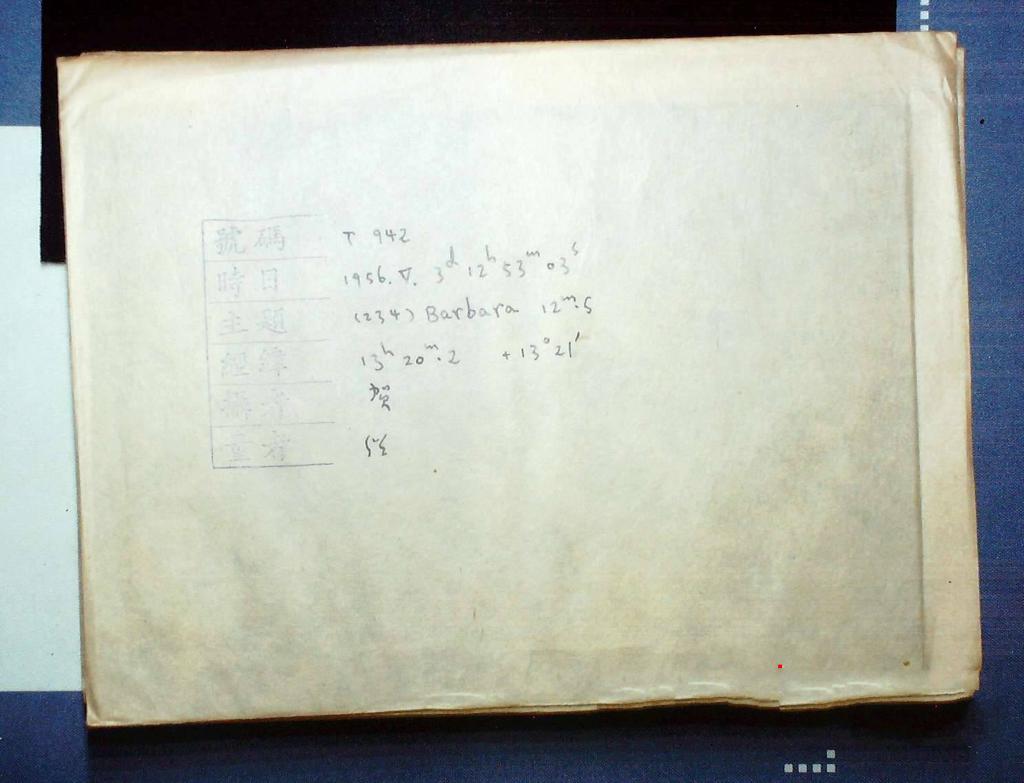 號碼 T 942
時日 1956. V. 3ᵈ 12ʰ 53ᵐ 03ˢ
主題 (234) Barbara 12ᵐ.5
經緯 13ʰ 20ᵐ.2 +13°21′
攝者 賀
量者